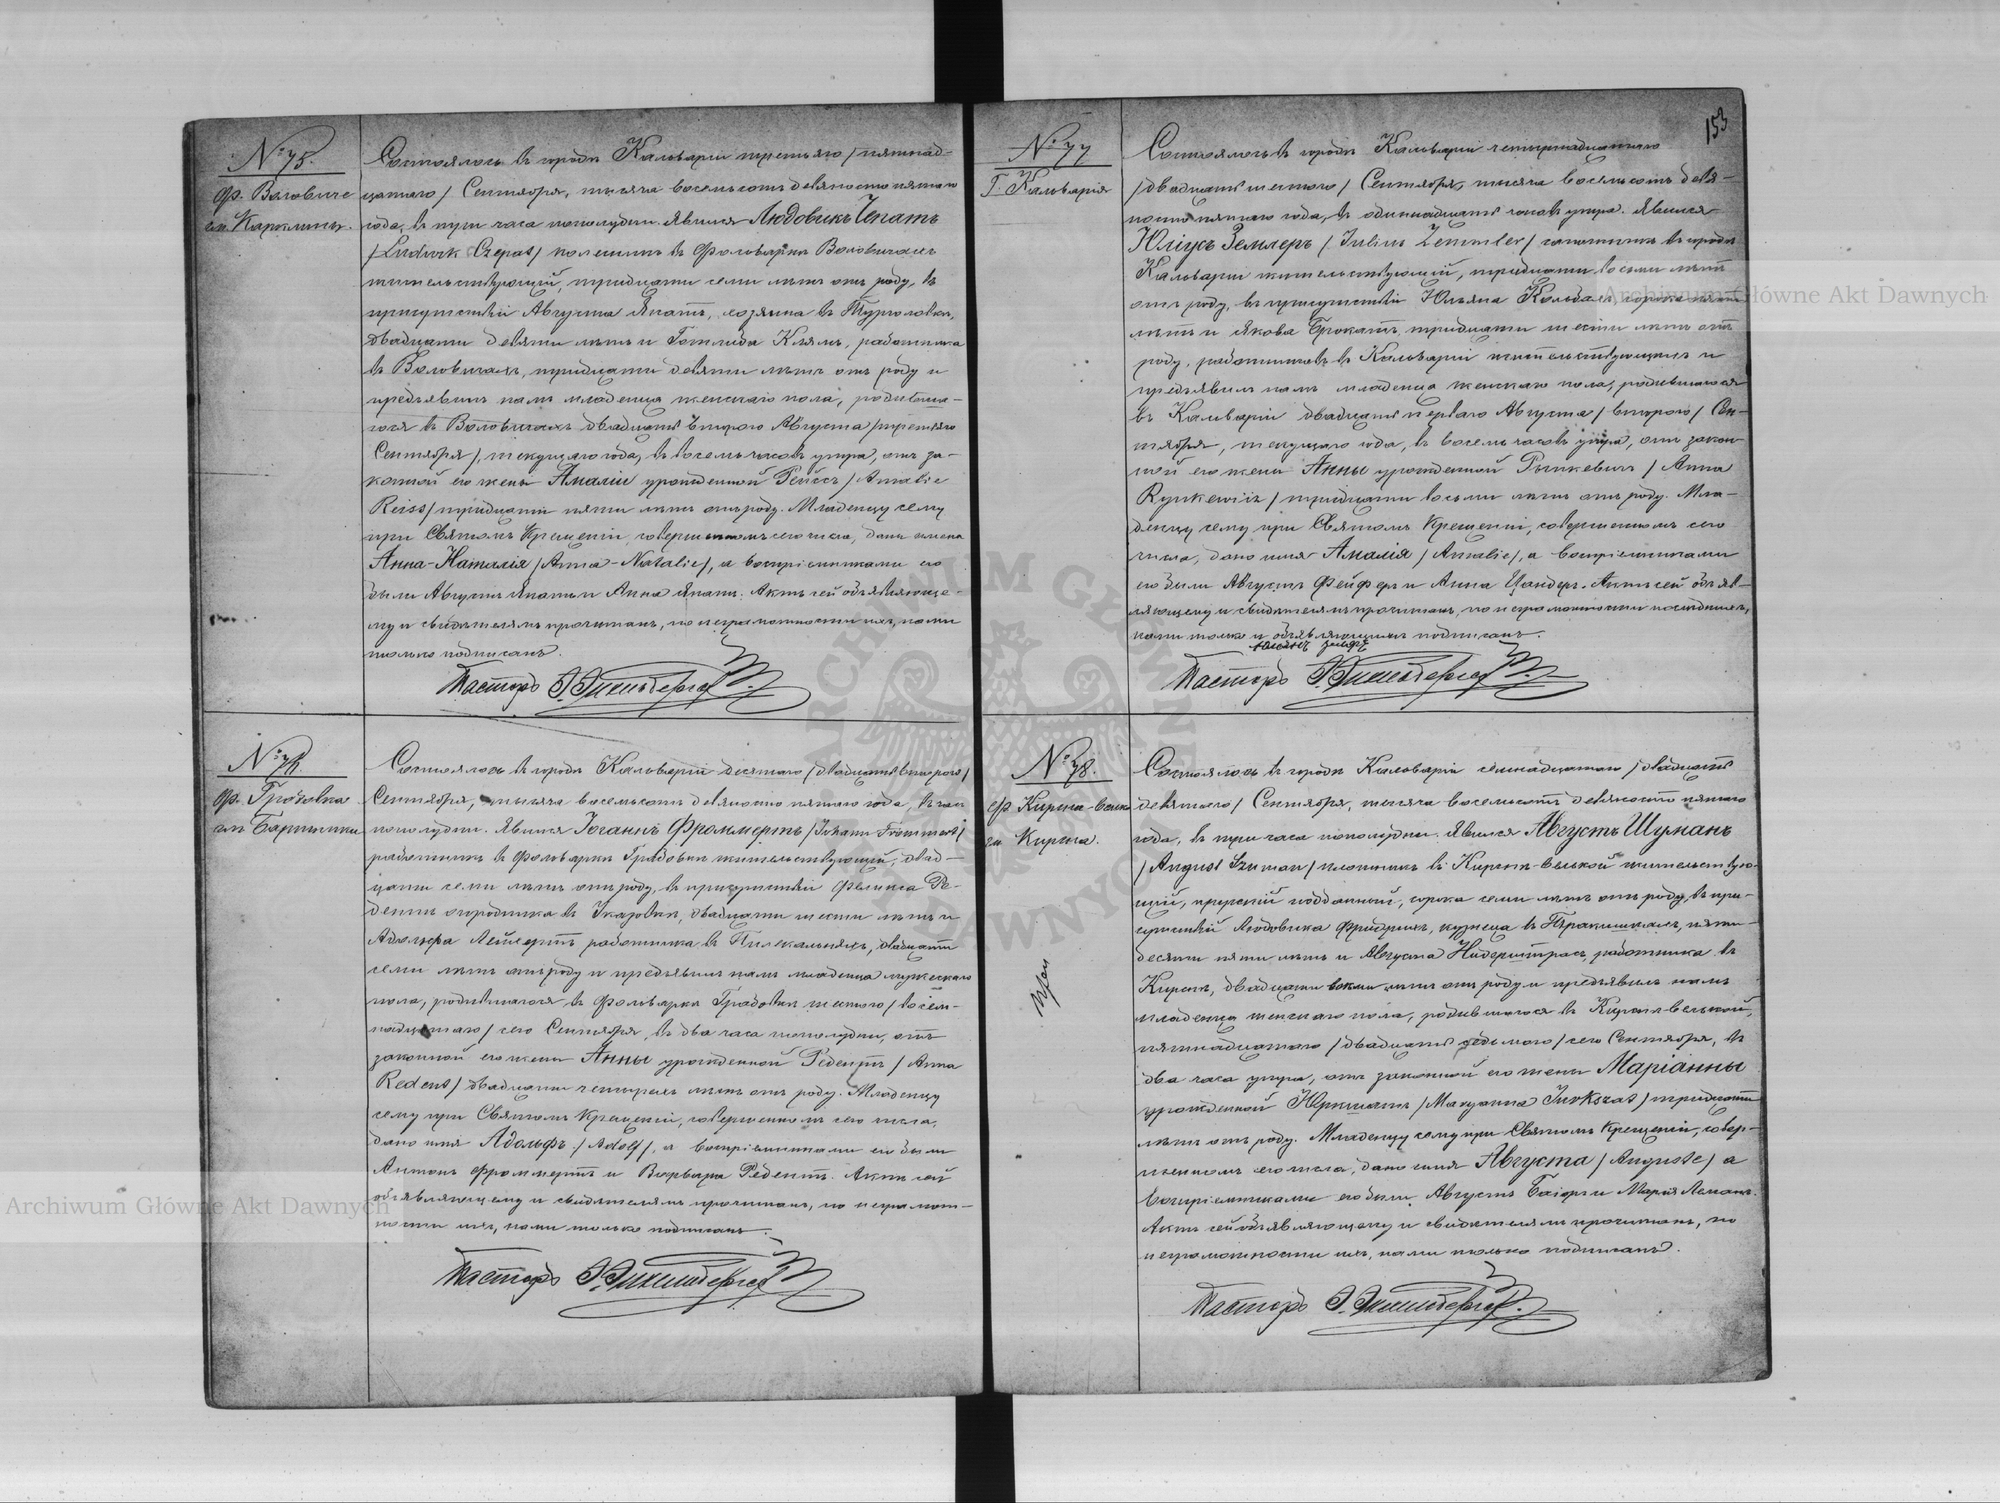 № 75.
ф. Воловиче
гм. Каролины.
Состоялось въ городѣ Кальваріи третьяго /пятнад-
цатаго/ Сентября, тысяча восемьсотъ девяносто пятаго
года, въ три часа пополудни. Явился Людовикъ Чепатъ
/Ludwik Czepat/ въ фольваркѣ Воловичахъ
жительствующій, тридцати семи лѣтъ отъ роду, въ
присутствіи Августа хозяина въ
двадцати девяти лѣтъ и Готлиба Клямъ, работника
въ Воловичахъ, тридцати девяти лѣтъ отъ роду и
предъявилъ намъ младенца женскаго пола, родивша-
гося въ Воловичахъ двадцать втораго Августа /третьяго
Сентября/, текущаго года, въ восемь часовъ утра, отъ за-
конной его жены Амаліи урожденной Рейссъ /Amalie
Reiss/ тридцати пяти лѣтъ отъ роду. Младенцу сему
при Святомъ Крещеніи, совершенномъ сего числа, даны имена
Анна-Наталія /Anna-Natalie/, а воспріемниками его
были Августъ и Анна Актъ сей объявляюще-
му и свидѣтелямъ прочитанъ, по неграмотности ихъ, нами
только подписанъ.
Пасторъ
№ 76.
ф. Градовка
гм. Бартники
Состоялось въ городѣ Кальваріи десятаго /двадцать втораго/
Сентября, тысяча восемьсотъ девяносто пятаго года, въ часъ
пополудни. Явился Іоганнъ Фроммертъ /Johann Frommert/
работникъ въ фольваркѣ Градовкѣ жительствующій, двад-
цати семи лѣтъ отъ роду, въ присутствіи Феликса Ре-
дентъ огородника въ двадцати шести лѣтъ и
Адольфа работника въ двадцати
семи лѣтъ отъ роду и предъявилъ намъ младенца мужескаго
пола, родившагося въ фольваркѣ Градовкѣ шестого /восем-
надцатаго/ сего Сентября, въ два часа пополудни, отъ
законной его жены Анны урожденной Редентъ /Anna
Redent/ двадцати четырехъ лѣтъ отъ роду. Младенцу
сему при Святомъ Крещеніи, совершенномъ сего числа,
дано имя Адольфъ /Adolf/, а воспріемниками его были
Антонъ Фроммертъ и Варвара Редентъ. Актъ сей
объявляющему и свидѣтелямъ прочитанъ, по неграмот-
ности ихъ, нами только подписанъ.
Пасторъ
153
№ 77
Г. Кальварія
Состоялось въ городѣ Кальваріи четырнадцатаго
/двадцать шестого/ Сентября, тысяча восемьсотъ девя-
носто пятаго года, въ одиннадцать часовъ утра. Явился
Юліусъ Земмлеръ /Julius Zemmler/ сапожникъ въ городѣ
Кальваріи жительствующій, тридцати восьми лѣтъ
отъ роду, въ присутствіи Юльяна сорока пяти
лѣтъ и Якова тридцати шести лѣтъ отъ
роду, работниковъ въ Кальваріи жительствующихъ и
предъявилъ намъ младенца женскаго пола, родившагося
въ Кальваріи двадцать перваго Августа /втораго/ Сен-
тября, текущаго года, въ восемь часовъ утра, отъ закон-
ной его жены Анны урожденной Рынкевичъ /Anna
Rynkewicz/ тридцати восьми лѣтъ отъ роду. Мла-
денцу сему при Святомъ Крещеніи, совершенномъ сего
числа, дано имя Амалія /Amalie/, а воспріемниками
его были Августъ Фейферъ и Анна Цандеръ. Актъ сей объяв-
ляющему и свидѣтелямъ прочитанъ, по неграмотности послѣднихъ,
нами только и объявляющимъ подписанъ.
Пасторъ
№ 78.
ф. Кирсна-велька
гм. Кирсна.
Состоялось въ городѣ Кальваріи семнадцатаго /двадцать
девятаго/ Сентября, тысяча восемьсотъ девяносто пятаго
года, въ три часа пополудни. Явился Августъ Шуманъ
/August Szuman/ плотникъ въ Кирснѣ-велькой жительствую-
щій, прусскій подданный, сорока семи лѣтъ отъ роду, въ при-
сутствіи Людовика Фридрихъ, кузнеца въ пяти-
десяти пяти лѣтъ и Августа Нидерштрасъ, работника въ
Кирснѣ, двадцати восьми лѣтъ отъ роду и предъявилъ намъ
младенца женскаго пола, родившагося въ Кирснѣ-велькой,
пятнадцатаго /двадцать седьмого/ сего Сентября, въ
два часа утра, отъ законной его жены Маріанны
урожденной Юркшатъ /Maryanna Jurkszat/ тридцати
лѣтъ отъ роду. Младенцу сему при Святомъ Крещеніи, совер-
шенномъ сего числа, дано имя Августа /Auguste/ а
воспріемниками его были Августъ и Марія Леманъ.
Актъ сей объявляющему и свидѣтелямъ прочитанъ, по
неграмотности ихъ, нами только подписанъ.
Пасторъ
Archiwum Główne Akt Dawnych
Archiwum Główne Akt Dawnych
ARCHIWUM GŁÓWNE AKT DAWNYCH